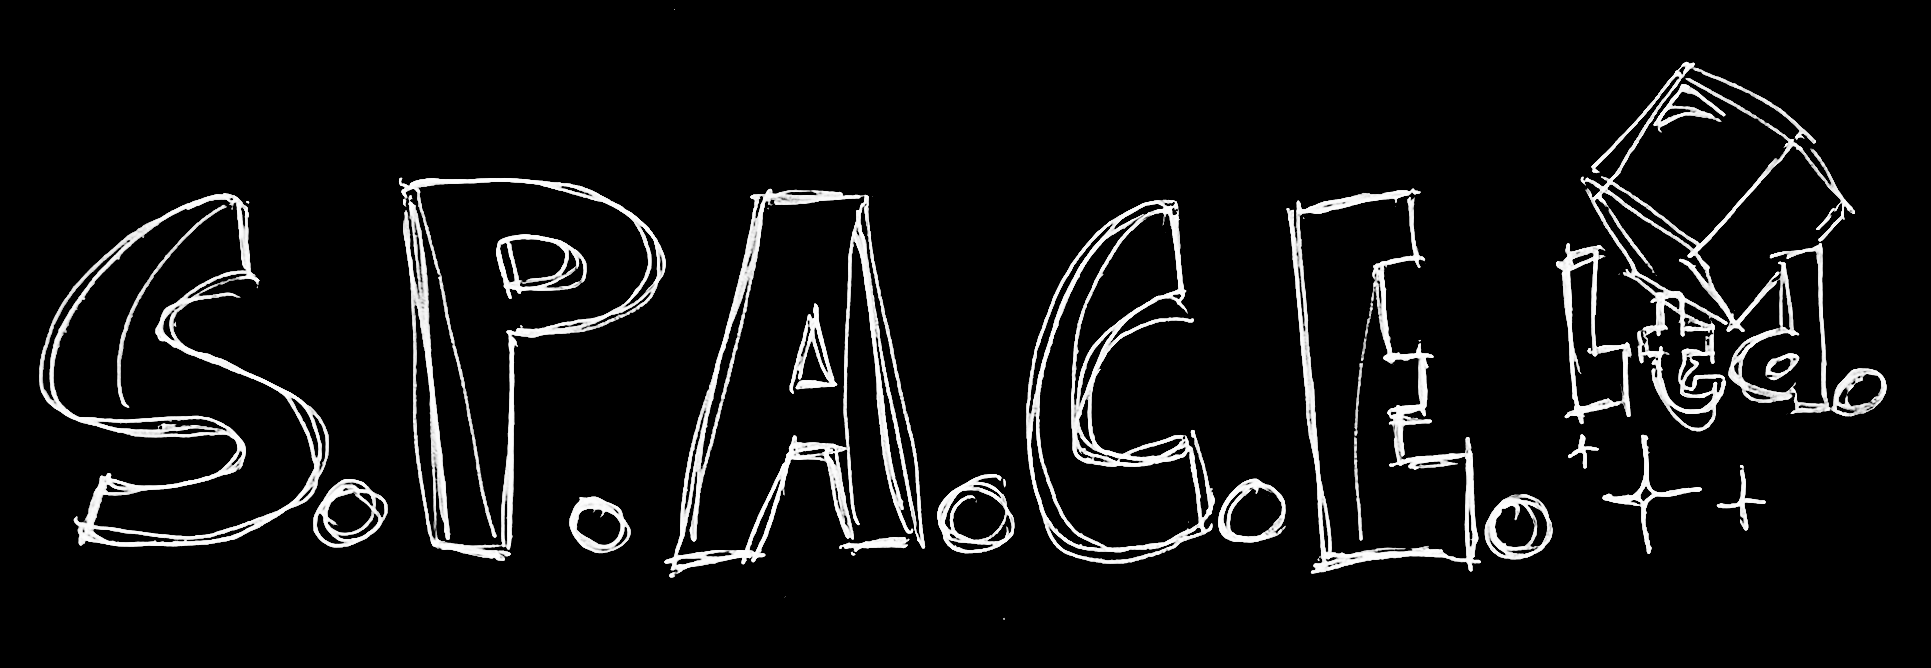 S.P.A.C.E. Ltd.